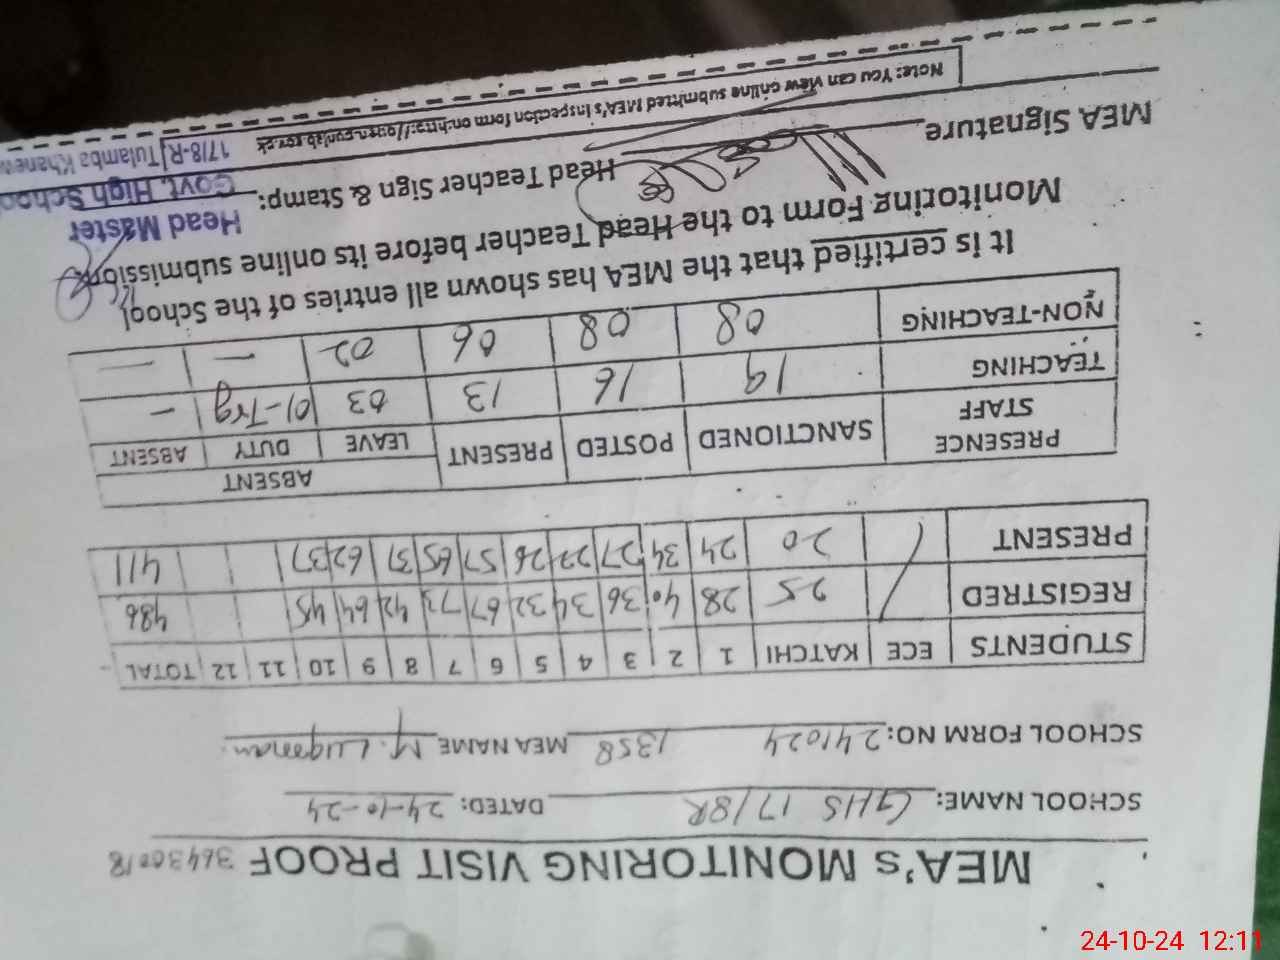 MEA's MONITORING VISIT PROOF 36430018
SCHOOL NAME: GHS 17/8R DATED: 24-10-24
SCHOOL FORM NO: 241024 1358 MEA NAME M. Luqman
STUDENTS ECE KATCHI 1 2 3 4 5 6 7 8 9 10 11 12 TOTAL
REGISTRED 25 28 40 36 34 32 67 73 42 64 45 486
PRESENT 20 24 34 27 22 26 57 65 37 62 37 411
PRESENCE STAFF SANCTIONED POSTED PRESENT ABSENT
LEAVE DUTY ABSENT
TEACHING 19 16 13 03 01-Trg –
NON-TEACHING 08 08 06 02 – –
It is certified that the MEA has shown all entries of the School
Monitoring Form to the Head Teacher before its online submission.
MEA Signature Head Teacher Sign & Stamp:
Head Master
Govt. High School
17/8-R Tulamba
Note: You can view online submitted MEA's inspection form on:http://open.punjab.gov.pk
24-10-24 12:11